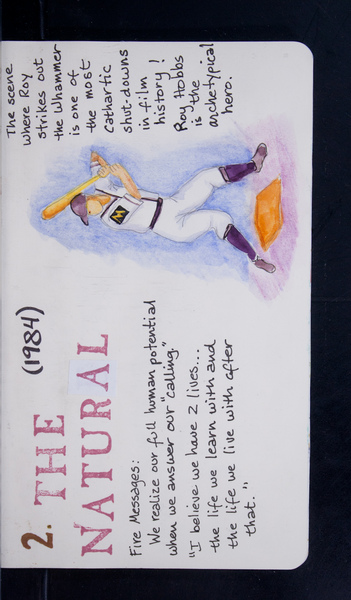 2. THE (1984)
NATURAL
Fire Messages:
We realize our full human potential
when we answer our "calling."
"I believe we have 2 lives...
the life we learn with and
the life we live with after
that."
The scene
where Roy
strikes out
the Whammer
is one of
the most
cathartic
shut-downs
in film
history!
Roy Hobbs
is the
archetypical
hero.